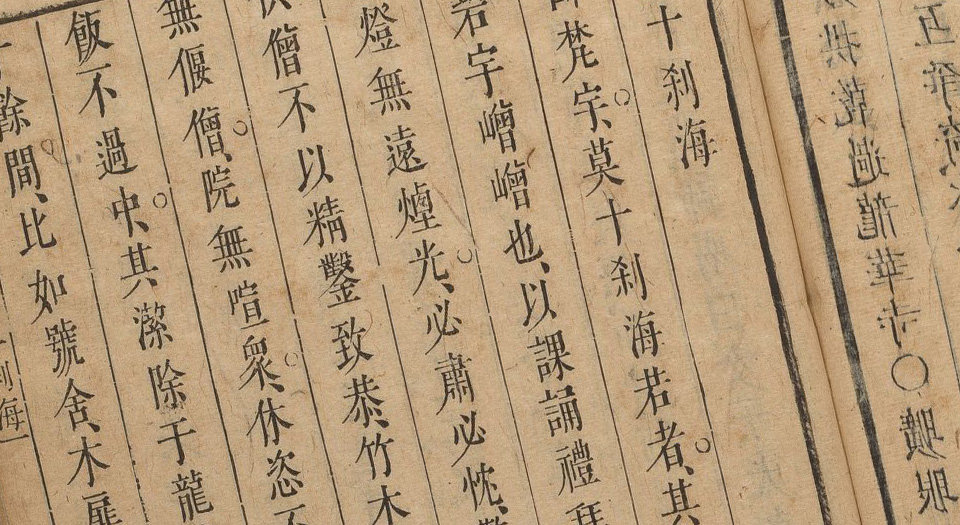 過龍華寺○
十刹海
梵宇、莫十刹海若者、其
若宇嶒嶒也、以課誦禮
燈無遠煙光、必肅必忱、
僧不以精鑿致恭、竹木
無偃僧、院無喧衆、休恣不
飯不過中、其潔除于龍
餘間、比如號舍、木扉
刹海